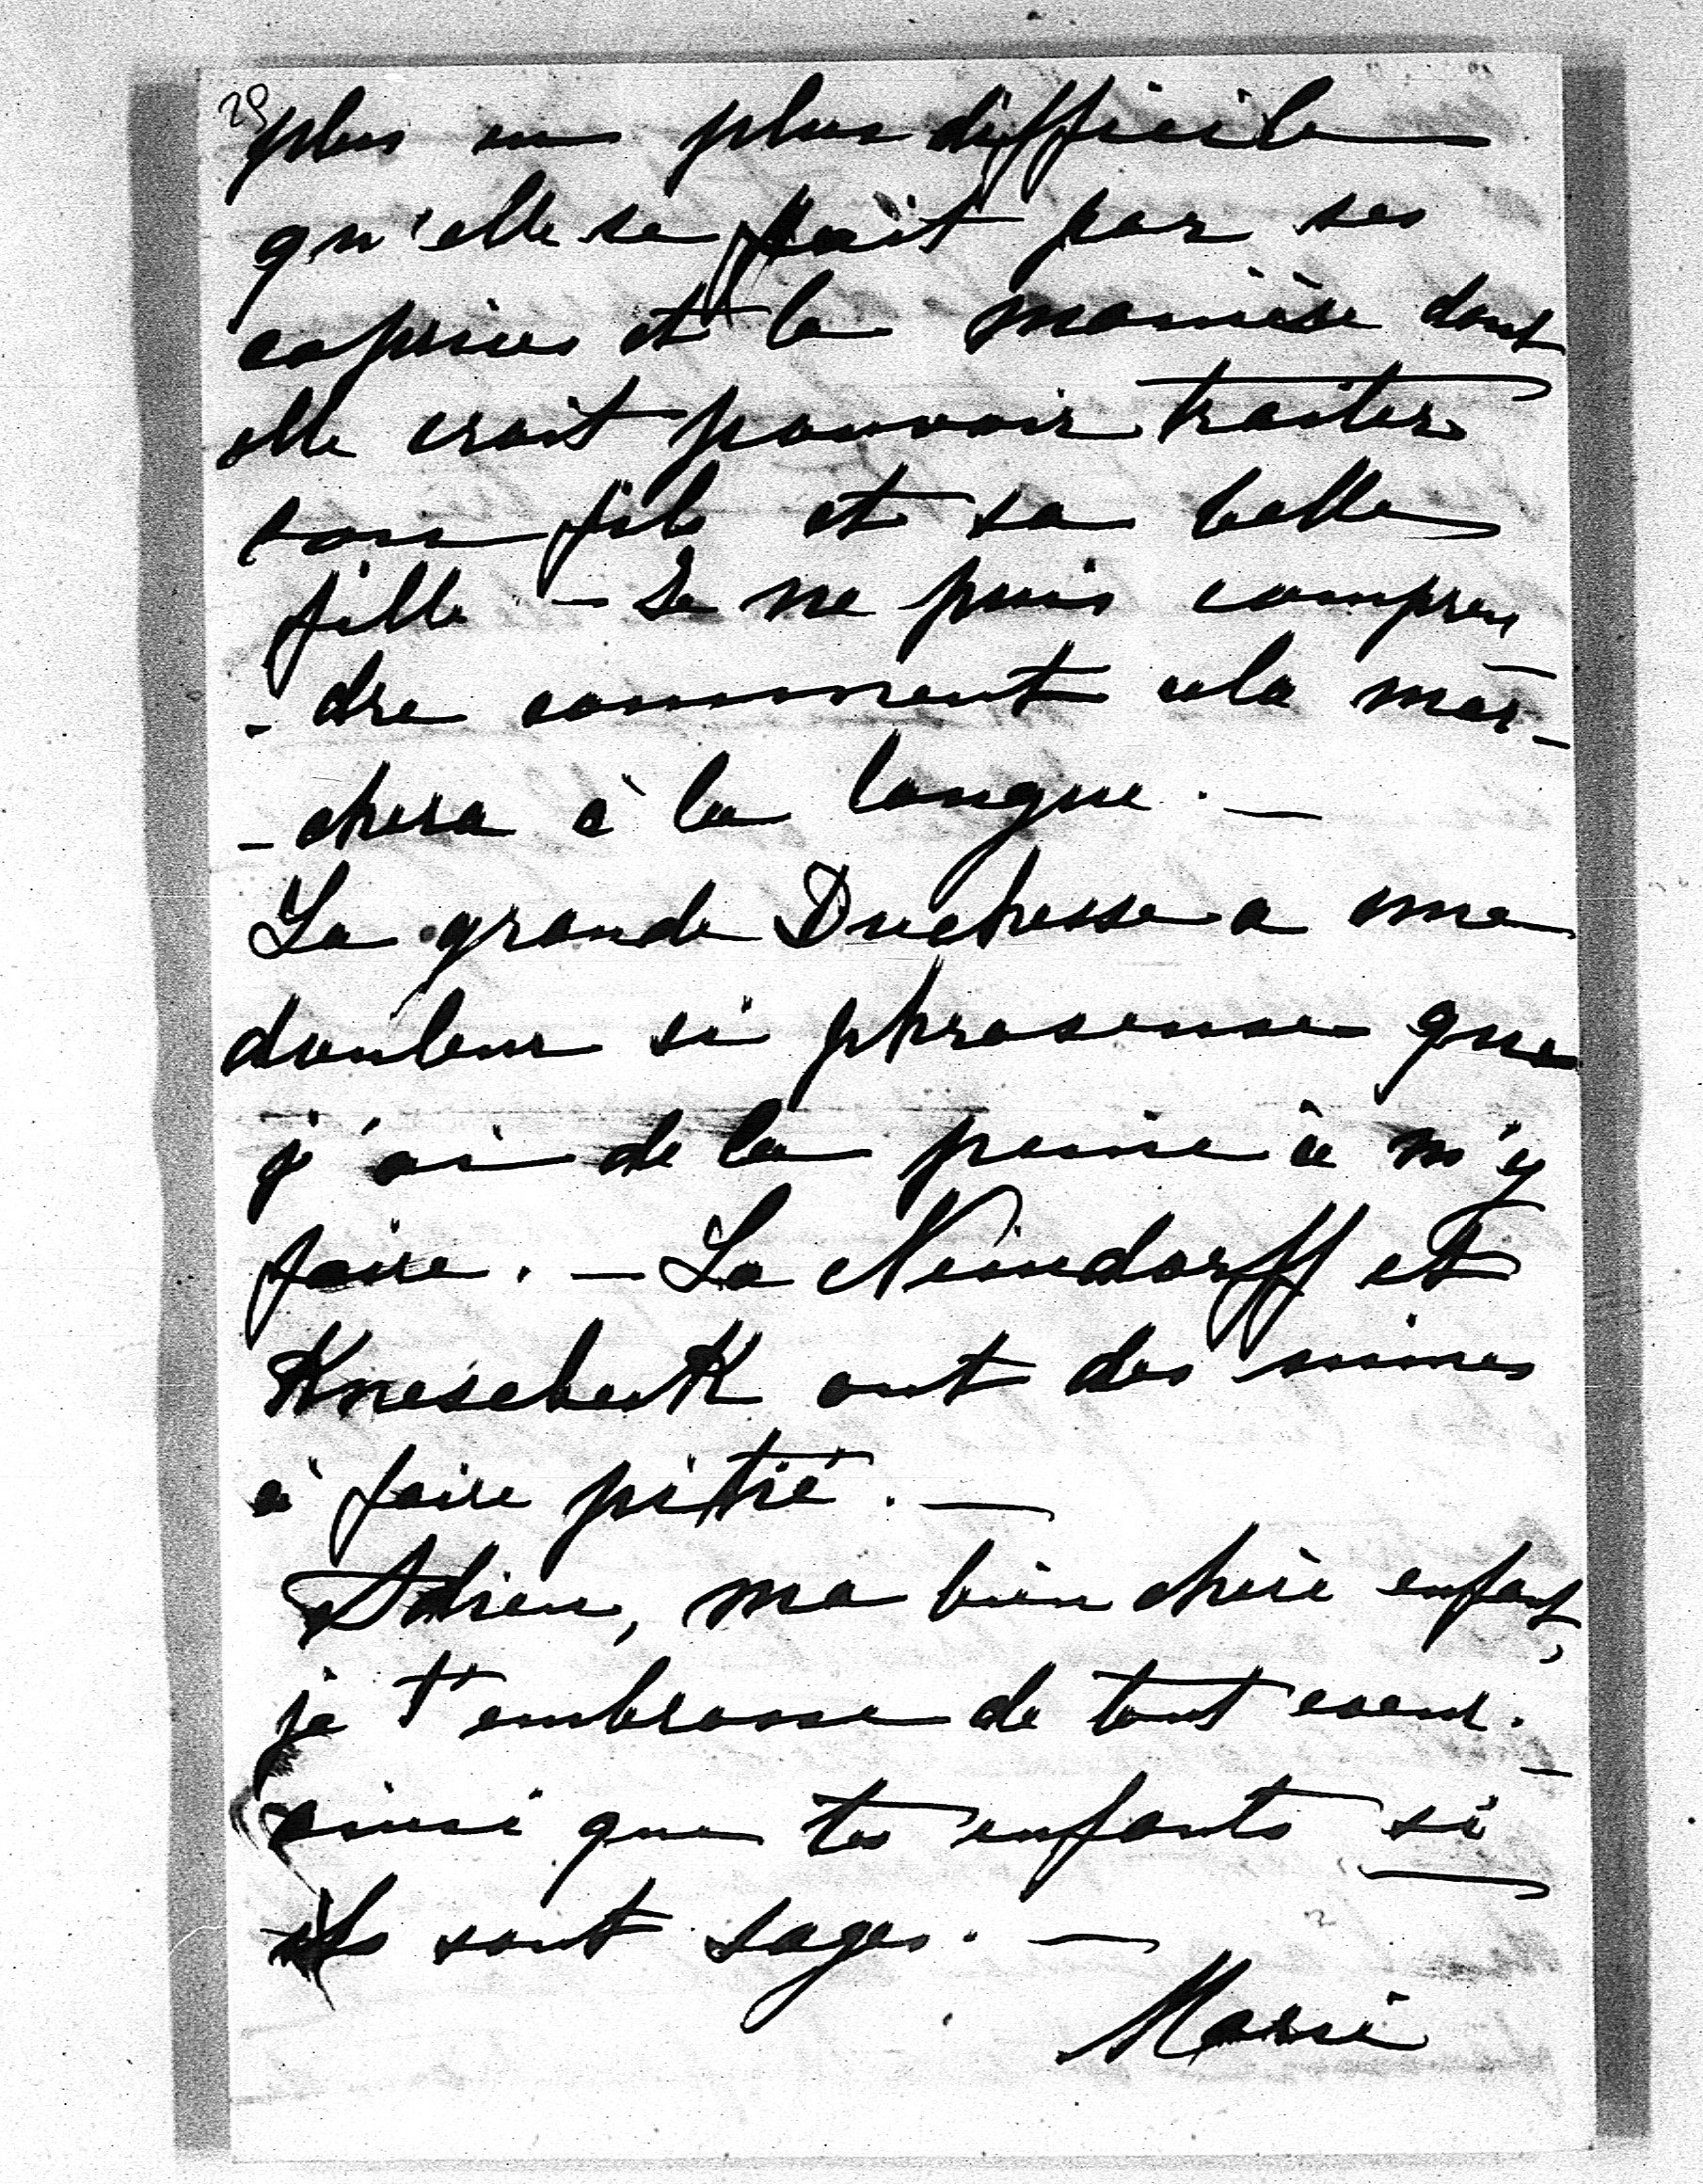 29
plus en plus difficile
qu'elle se fait par ses
caprices et la manière dont
elle croit pouvoir traiter
son fils et sa belle
fille. — Je ne puis compren
- dre comment cela mar-
- chera à la longue. —
La grande Duchesse a une
douleur si phraseuse que
j'ai de la peine à m'y
faire. — La Neindorff et
Knesebeck ont des mines
à faire pitié. —
Adieu, ma bien chère enfant,
je t'embrasse de tout coeur. —
ainsi que tes enfants si
ils sont sages. —
Marie